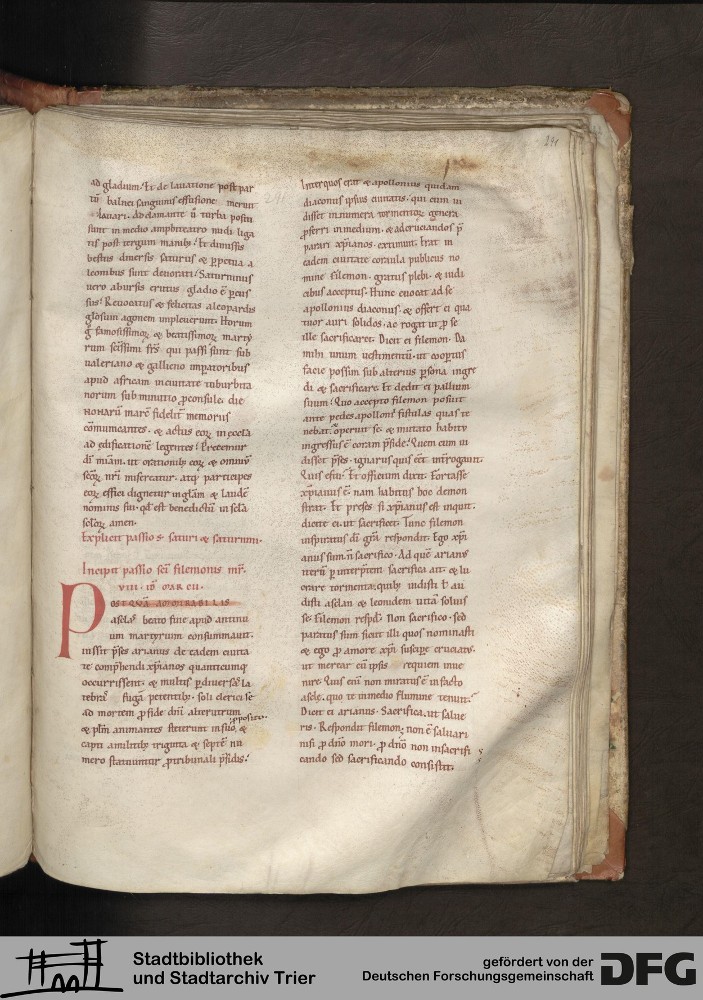 291
ad gladium. Et de lauatione post par
tū balnei sanguinis effusione meruit
lauari. Adclamante ū turba positi
sunt in medio amphiteatro nudi liga
tis post tergum manibꝫ. Et dimissis
bestiis diuersis saturus & ꝑpetua a
leonibus sunt deuorati. Saturninus
uero abursis erutus gladio ē ꝑcus
sus. Reuocatus & felicitas aleopardis
gl̄osum agonem impleuerunt. Horum
g̊ famosissimoꝝ & beatissimoꝝ marty
rum sc̄issimi fr̄s qui passi sunt sub
ualeriano & gallieno imꝑatoribus
apud africam inciuitate tuburbita
norum sub minutio ꝓconsule. die
nonarū marc̄ fidelit̄ memorus
cōmunicantes. & actus eoꝝ in eccl̄a
ad edificationē legentes. Precemur
dī mīam. ut orationibꝫ eoꝝ & omniū
sc̄oꝝ nr̄i misereatur. atqꝫ participes
eoꝝ effici dignetur in glām & laudē
nominis sui. qd̄ est benedictū in sc̄la
sc̄loꝝ. amen.
Explicit passio s̄ saturi & saturnini.
Incipit passio sc̄i filemonis mr̄.
VIII. ID̄ MAR CII.
POSTQVĀ ADMIRABILIS
asclas beato fine apud antinu
um martyrum consummauit.
iussit p̄ses arianus de eadem ciuita
te comp̄hendi xp̄ianos quanticumqꝫ
occurrissent. & multis ꝑ diuersa la
tebras fugā petentibꝫ. soli clerici se
ad mortem ꝓ fide dn̄i alterutrum
& plm̄ animantes steterunt in suo ꝓposito. &
capti amilitibꝫ triginta & septē nu
mero statuuntur ꝓ tribunali p̄sidis.
Inter quos erat & apollonius quidam
diaconus ipsius ciuitatis. qui cum ui
disset innumera tormentoꝝ genera
ꝓferri in medium. & ad cruciandos p̄
parari xp̄ianos. extimuit. Erat in
eadem ciuitate coraula publicus no
mine filemon. gratus plebi. & iudi
cibus acceptus. Hunc euocat ad se
apollonius diaconus & offert ei qua
tuor auri solidos. ac rogit ut ꝓ se
ille sacrificaret. Dicit ei filemon. Da
mihi unum uestimentū. ut coopertus
facie possim sub alterius ꝑsona ingre
di & sacrificare. Et dedit ei pallium
suum. Quo accepto filemon posuit
ante pedes apollonī fistulas quas te
nebat. operuit se & mutato habitu
ingressus ē coram p̄side. Quem cum ui
disset p̄ses. ignarus quis ēēt int̄rogauit.
Quis es tu. Et officium dixit. Fortasse
xp̄ianus ē. nam habitus hoc demon
strat. Et preses. si xp̄ianus est inquit.
dicite ei ut sacrificet. Tunc filemon
inspiratus dī grā. respondit. Ego xp̄i
anus sum. n̄ sacrifico. Ad quē arianꝰ
iterū ꝑ interp̄tem. sacrifica ait. & lu
crare tormenta. quibꝫ uidisti ł au
disti asclan & leonidem uitā soluis
se. Filemon resp̄d. Non sacrifico. sed
paratus sum sicut illi quos nominasti
& ego ꝓ amore xp̄i suscipe cruciatꝰ.
ut merear cū ipsis requiem inue
nire. Quis enī non miratus ē in facto
ascle. quo te in medio flumine tenuit.
Dicit ei arianus. Sacrifica. ut salue
ris. Respondit filemon. non ē saluari
nisi ꝓ dn̄o mori. ꝓ dn̄o non insacrifi
cando sed sacrificando consistit.
Stadtbibliothek
und Stadtarchiv Trier
gefördert von der
Deutschen Forschungsgemeinschaft
DFG